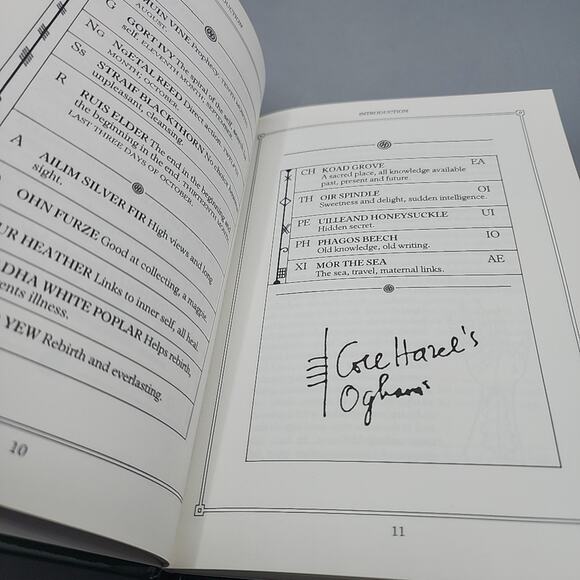 INTRODUCTION
G GORT IVY The spiral of the self, search for self. ELEVENTH MONTH, SEPTEMBER.
NG NGETAL REED Direct action.
MONTH: OCTOBER.
SS STRAIF BLACKTHORN No choice
unpleasant, cleansing.
R RUIS ELDER The end in the beginning and
the beginning in the end. THIRTEENTH MONTH
LAST THREE DAYS OF OCTOBER.
A AILIM SILVER FIR High views and long
sight.
OHN FURZE Good at collecting, a magpie.
UR HEATHER Links to inner self, all heal.
ADHA WHITE POPLAR Helps rebirth,
ents illness.
YEW Rebirth and everlasting.
10
INTRODUCTION
CH KOAD GROVE EA
A sacred place, all knowledge available
past, present and future.
TH OIR SPINDLE OI
Sweetness and delight, sudden intelligence.
PE UILLEAND HONEYSUCKLE UI
Hidden secret.
PH PHAGOS BEECH IO
Old knowledge, old writing.
XI MÓR THE SEA AE
The sea, travel, maternal links.
Cole Hazel's
Ogham
11